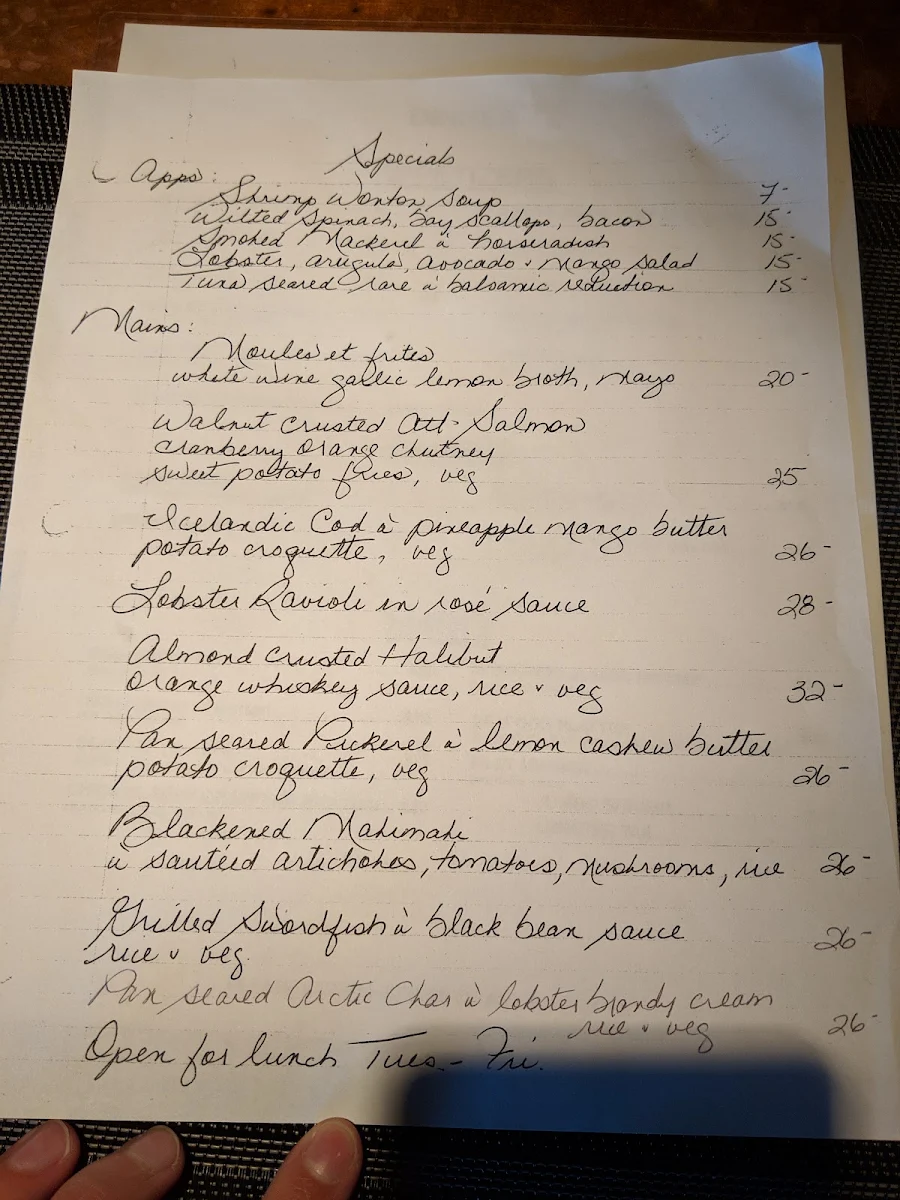 Specials
Apps:
Shrimp Wonton Soup 7-
Wilted Spinach, bay scallops, bacon 15-
Smoked Mackerel à horseradish 15-
Lobster, arugula, avocado & mango salad 15-
Tuna seared rare à balsamic reduction 15-
Mains:
Moules et frites
white wine garlic lemon broth, mayo 20-
Walnut crusted Atl. Salmon
cranberry orange chutney
sweet potato fries, veg 25
Icelandic Cod à pineapple mango butter
potato croquette, veg 26-
Lobster Ravioli in rosé sauce 28-
Almond crusted Halibut
orange whiskey sauce, rice & veg 32-
Pan seared Pickerel à lemon cashew butter
potato croquette, veg 26-
Blackened Mahimahi
à sautéed artichokes, tomatoes, mushrooms, rice 26-
Grilled Swordfish à black bean sauce 26-
rice & veg
Pan seared Arctic Char à lobster brandy cream
rice & veg 26-
Open for lunch Tues.- Fri.